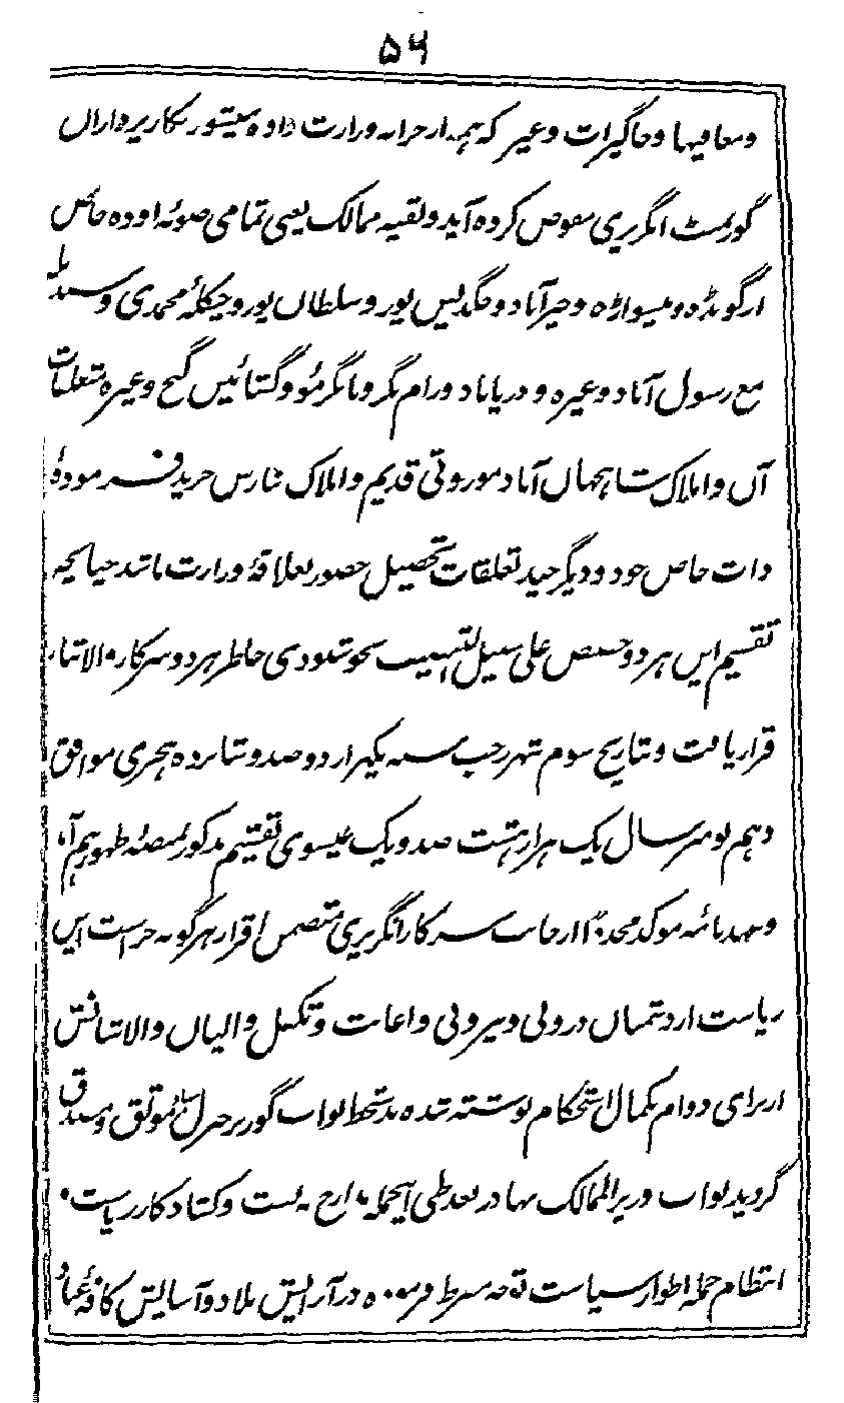 ۵۶
ومعافیها وجاگیرات وغیر که همه از خزانه وزارت داده میشود بکارپردازان
گورنمنٹ انگریزی مفوض کرده آید وبقیه ممالک یعنی تمامی صوبۂ اوده خاص
از گونڈه وبیسواڑه وخیرآباد وجگدیس پور وسلطان پور وچکلۂ محمدی وسندیله
مع رسول آباد وغیره ودریاباد ورام نگر وبانگرمئو وگشائیں گنج وغیره متعلقات
آں واملاک شاهجهاں آباد موروثی قدیم واملاک بنارس خرید فرمودۂ
ذات خاص خود ودیگر چند تعلقات تحصیل حضور بعلاقۂ وزارت ماند چنانچه
تقسیم ایں هر دو حصص علی سبیل التنصیف بخوشنودی خاطر هر دو سرکار والاتبار
قرار یافت وبتاریخ سوم شهر رجب سنه یکهزار دو صد وشانزده هجری موافق
دهم نومبر سال یک هزار هشت صد ویک عیسوی تقسیم مذکور بمنصۂ ظهور بهم آمد
وعهدنامه موکد مجدداً از جانب سرکار انگریزی متضمن اقرار هرگونه حراست ایں
ریاست از دشمناں درونی وبیرونی واعانت وتکفل والیاں والاشانش
از برای دوام بکمال استحکام نوشته شده بدستخط نواب گورنر جنرل موثق ومصدق
گردید نواب وزیر الممالک بهادر بعد طی اینجمله مدارج به بست وکشاد کار ریاست و
انتظام جمله اطوار سیاست توجه مفرط فرموده در آرایش بلاد وآسایش کافۂ عباد